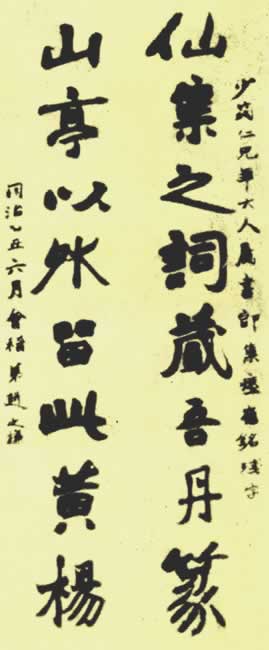 少筠仁兄年大人属書即集瘞鶴銘殘字
仙集之詞藏吾丹篆
山亭以外留此黃楊
同治乙丑六月會稽弟趙之謙